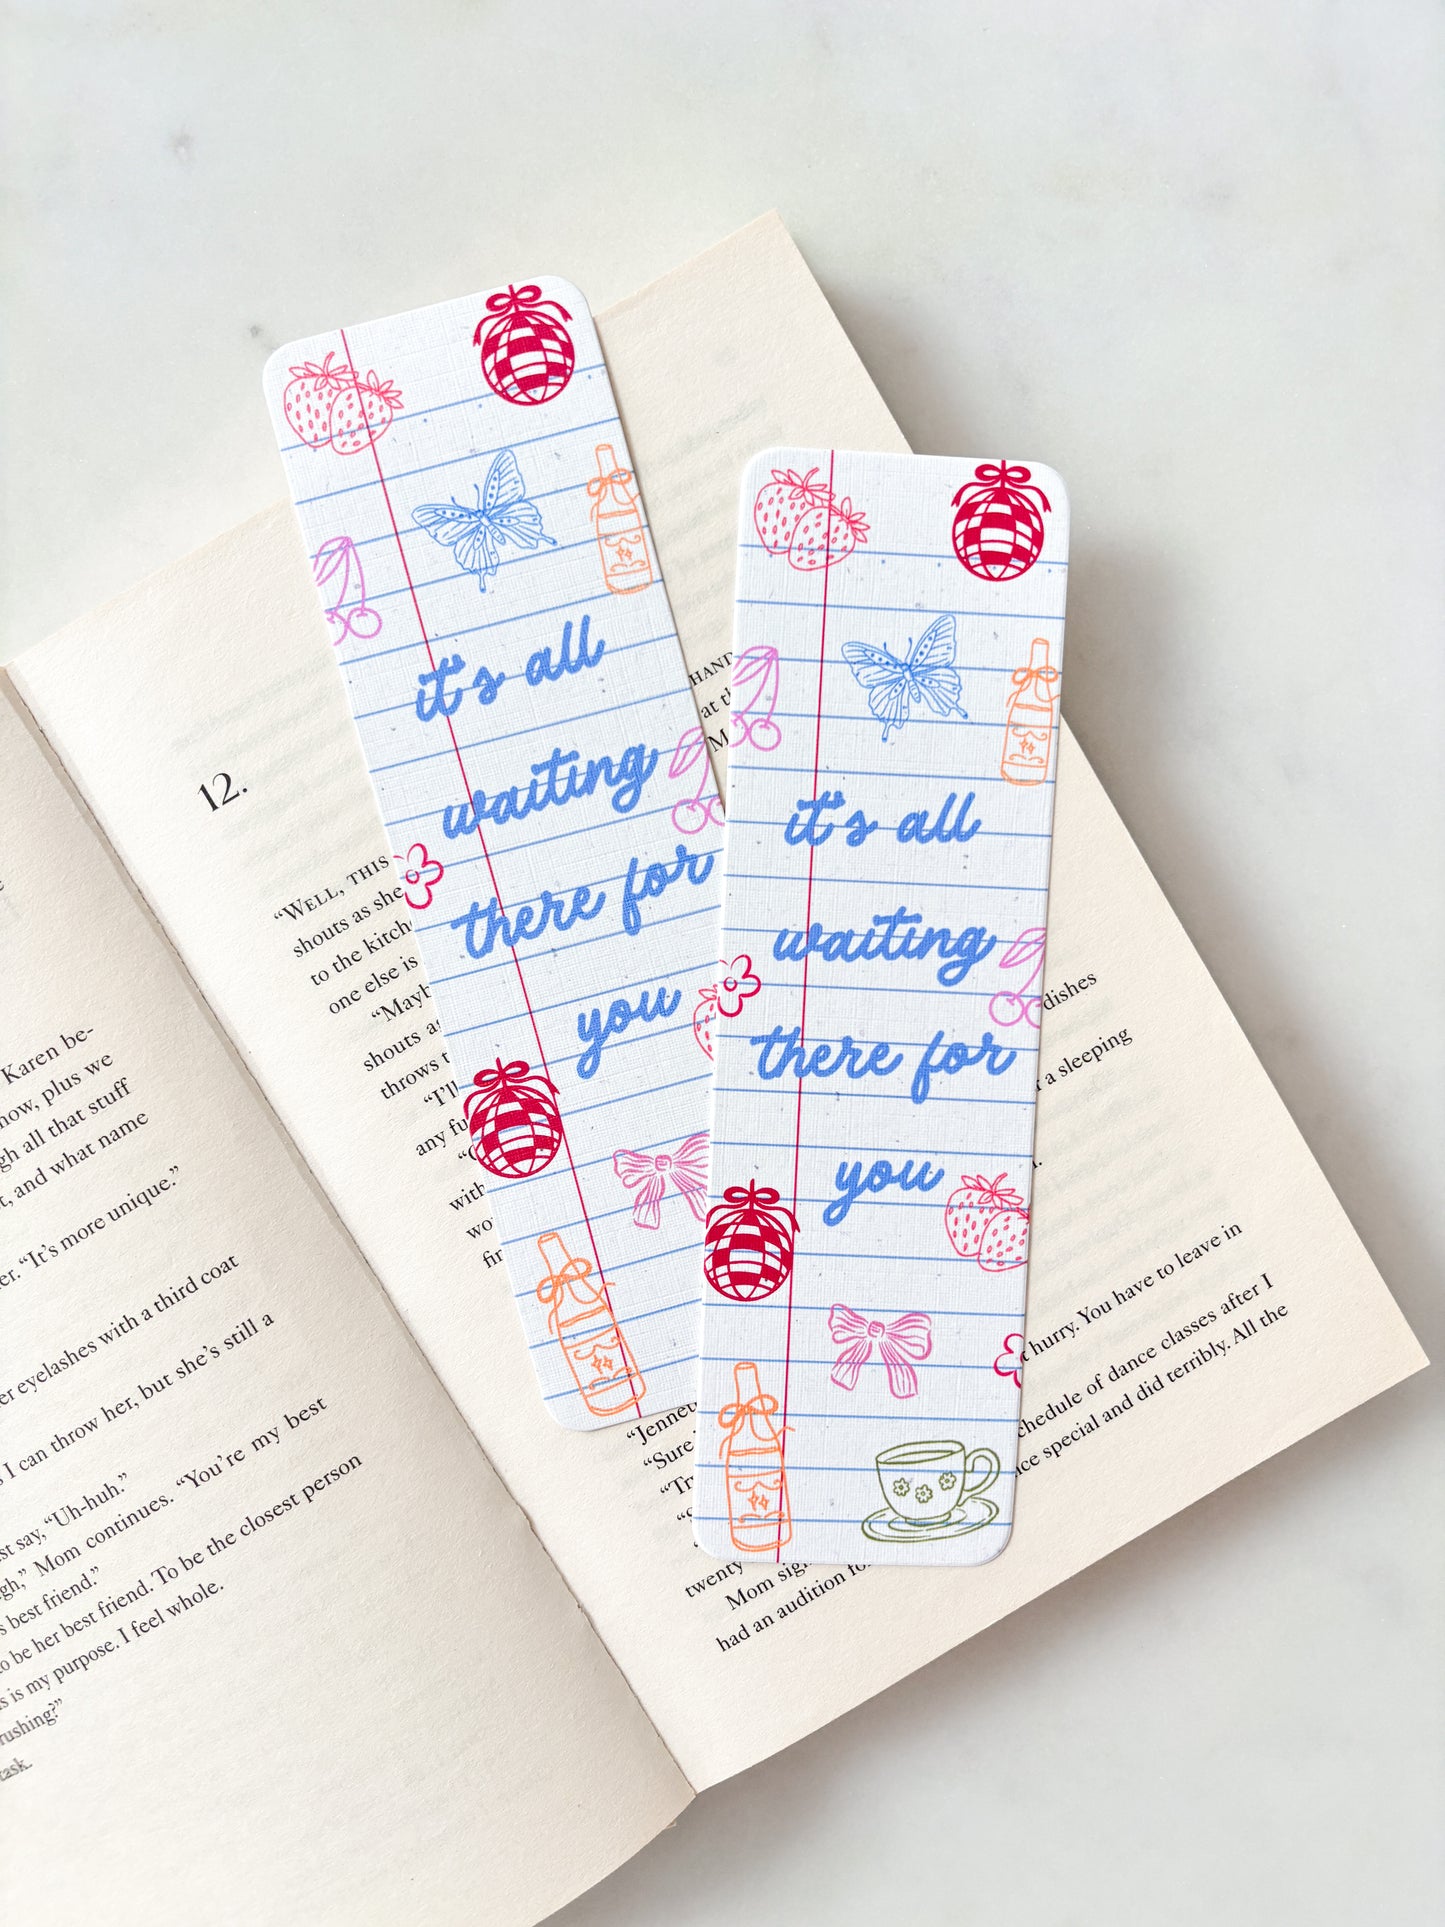 it's all
waiting
there for
you
it's all
waiting
there for
you
Karen be-
now, plus we
gh all that stuff
t, and what name
er. “It's more unique.”
er eyelashes with a third coat
I can throw her, but she's still a
st say, “Uh-huh.”
gh,” Mom continues. “You're my best
s best friend.”
o be her best friend. To be the closest person
s is my purpose. I feel whole.
rushing?”
task.
12.
“WELL, THIS
shouts as she
to the kitch
one else is
“Mayb
shouts a
throws t
“I'll
any fu
with
wo
fir
HAND
at th
M
dishes
r a sleeping
t hurry. You have to leave in
“Jennet
“Sure
“Tr
chedule of dance classes after I
nce special and did terribly. All the
twenty
Mom sig
had an audition fo